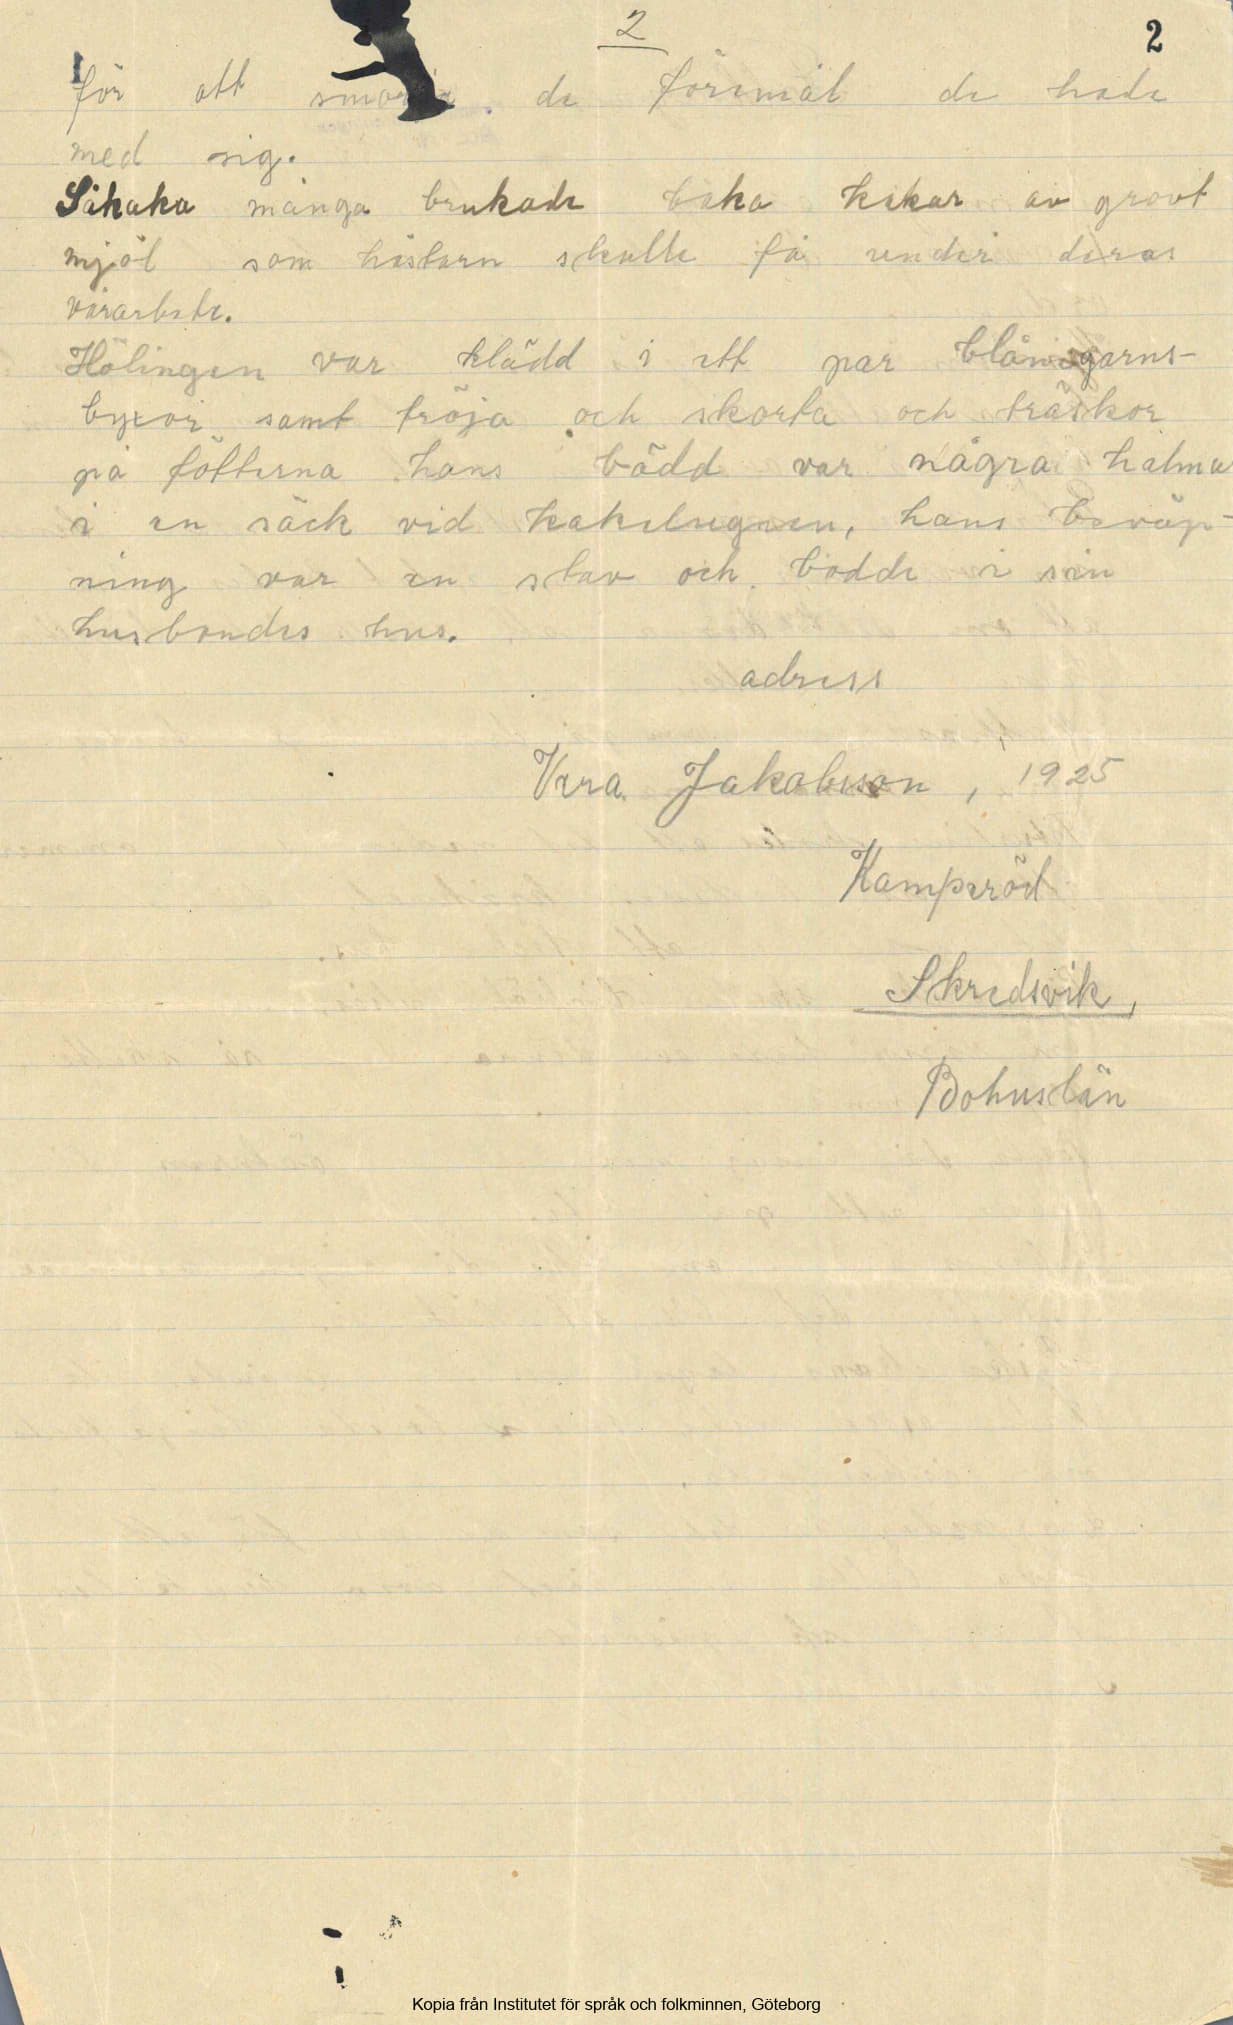 2
2
för att smörja de föremål de hade
med sig.
Såkaka många brukade baka kakar av grovt
mjöl som hästarn skulle få under deras
vårarbete.
Hölingen var klädd i ett par blånegarns-
byxor samt tröja och skorta och träskor
på fötterna hans bädd var några halmur
i en säck vid kakelugnen, hans beväp-
ning var en stav och bodde i sin
husbondes hus.
adress
Vera Jakobsson, 1925
Kamperöd
Skredsvik,
Bohuslän
Kopia från Institutet för språk och folkminnen, Göteborg